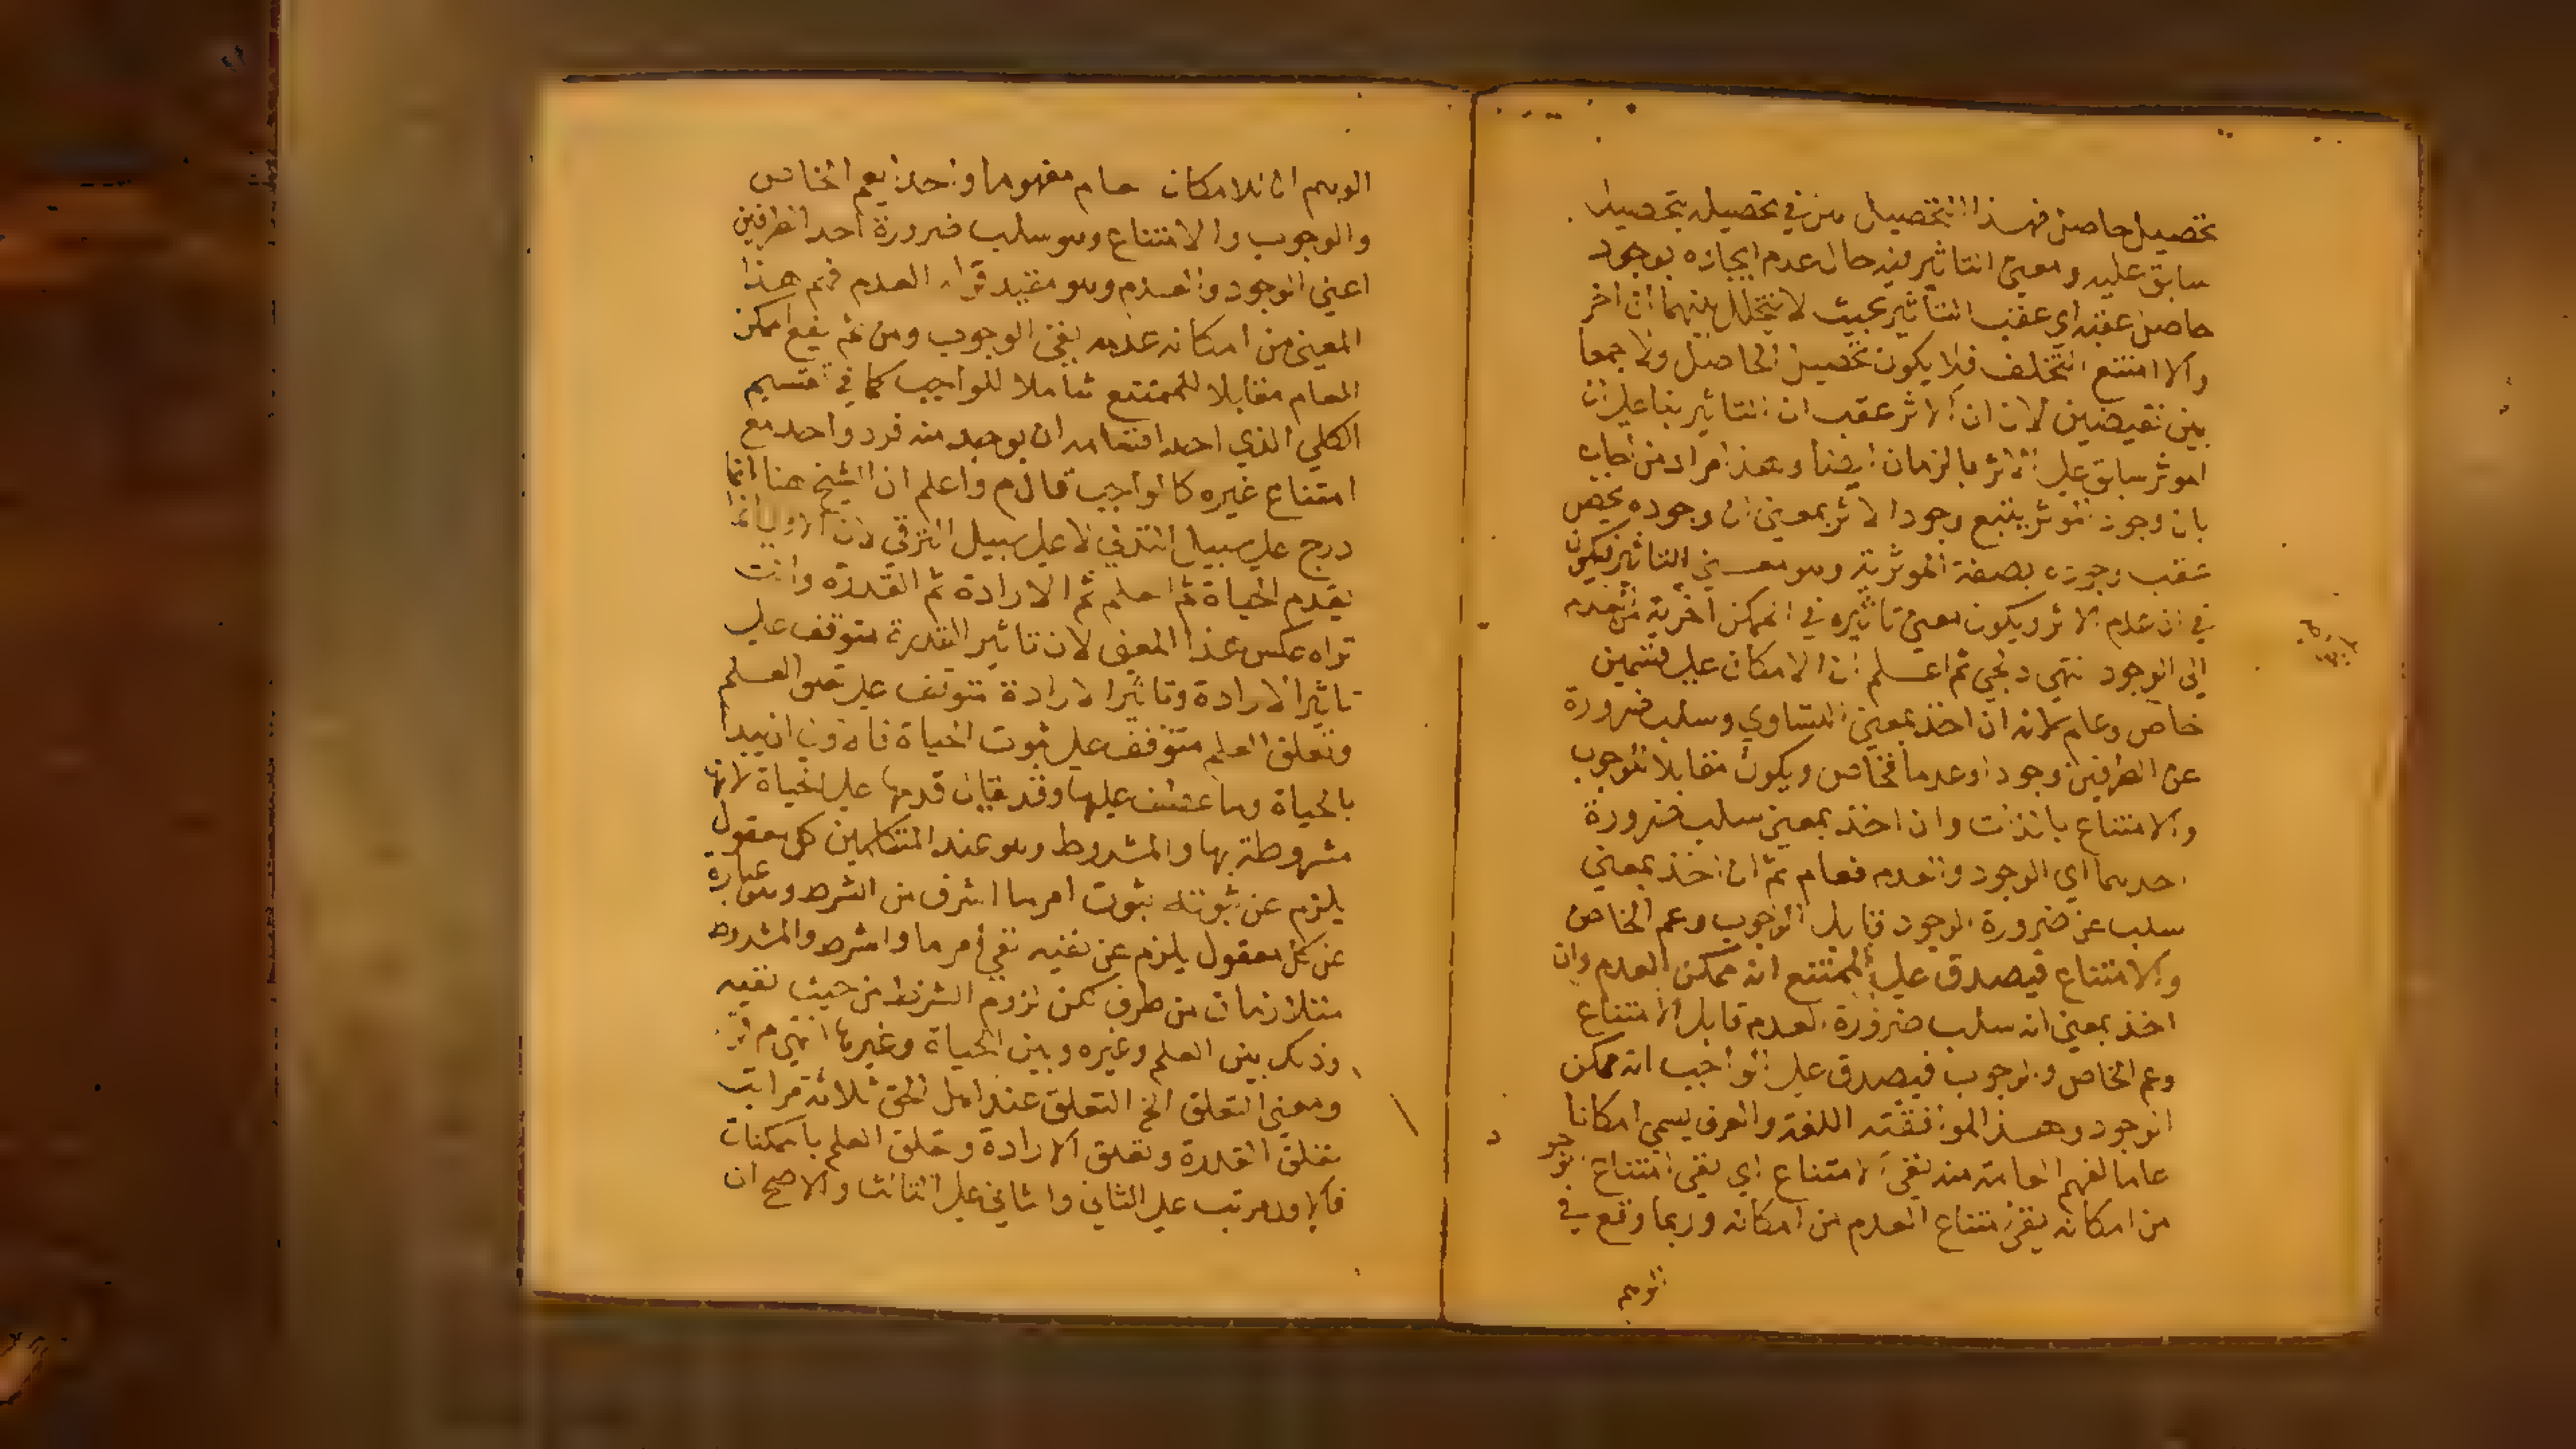 تحصيل حاصل فهذا التحصيل من في تحصيله بتحصيل
سابق عليه ومعنى التاثير فيه حال عدم ايجاده بوجود
حاصل عقبه اي عقب التاثير بحيث لا يتخلل بينهما ان اخر
والا امتنع التخلف فلا يكون تحصيل الحاصل ولا جمعا
بين نقيضين لان ان الاثر عقب ان التاثير بناء على ان
الموثر سابق على الاثر بالزمان ايضا وهذا مراد من اجاب
بان وجود الموثر يتبع وجود الاثر بمعنى ان وجوده يحصل
عقب وجوده بصفة الموثرية وهو معنى التاثير فيكون
في ان عدم الاثر ويكون معنى تاثيره في الممكن اخرجه من العدم
الى الوجود انتهى ثم اعلم ان الامكان على قسمين
خاص وعام لانه ان اخذ بمعنى التساوي وسلب ضرورة
عن الطرفين وجودا وعدما فخاص ويكون مقابلا للوجوب
والامتناع بالذات وان اخذ بمعنى سلب ضرورة
احدهما اي الوجود والعدم فعام ثم ان اخذ بمعنى
سلب عن ضرورة الوجود قابل الوجوب وعم الخاص
والامتناع فيصدق على الممتنع انه ممكن العدم وان
اخذ بمعنى انه سلب ضرورة العدم قابل الامتناع
وعم الخاص والوجوب فيصدق على الواجب انه ممكن
الوجود وهذا الموافقته اللغة والعرف يسمى امكانا
عاما لفهم العامة منه نفي الامتناع اي نفي امتناع الوجو
من امكانه نفي امتناع العدم من امكانه وربما وقع في
الوهم
الوهم ان للامكان عام مفهوما واحدا يعم الخاص
والوجوب والامتناع وهو سلب ضرورة احد الطرفين
اعني الوجود والعدم وهو مقيد العدم هذا
المعنى من امكانه عدمه نفي الوجوب ومن ثم يقع الممكن
العام مقابلا للممتنع شاملا للواجب كما في تقسيم
الكلي الذي احد اقسامه ان يوجد منه فرد واحد مع
امتناع غيره كالواجب قال م واعلم ان الشيخ هنا انما
درج على سبيل التدلي لا على سبيل الترقي لان الاولى انما
يقدم الحياة ثم العلم ثم الارادة ثم القدرة وانت
تراه عكس هذا المعنى لان تاثير القدرة متوقف على
تاثير الارادة وتاثير الارادة متوقف على تعلق العلم
وتعلق العلم متوقف على ثبوت الحياة فالاولى ان يبدا
بالحياة وما عطف عليها وقد يقال قدمها على الحياة لانها
مشروطة بها والمشروط وهو عند المتكلمين كل معقول
يلزم عن ثبوته ثبوت امر ما اشرف من الشرط وهو عبارة
عن كل معقول يلزم عن نفيه نفي امر ما والشرط والمشروط
متلازمان من طرف لكن لزوم الشرط من حيث نفيه
وذلك بين العلم وغيره وبين الحياة وغيرها انتهى م
ومعنى التعلق الخ التعلق عند اهل الحق ثلاثة مراتب
تعلق القدرة وتعلق الارادة وتعلق العلم بالممكنات
فالاول مرتب على الثاني والثاني على الثالث والاصح ان